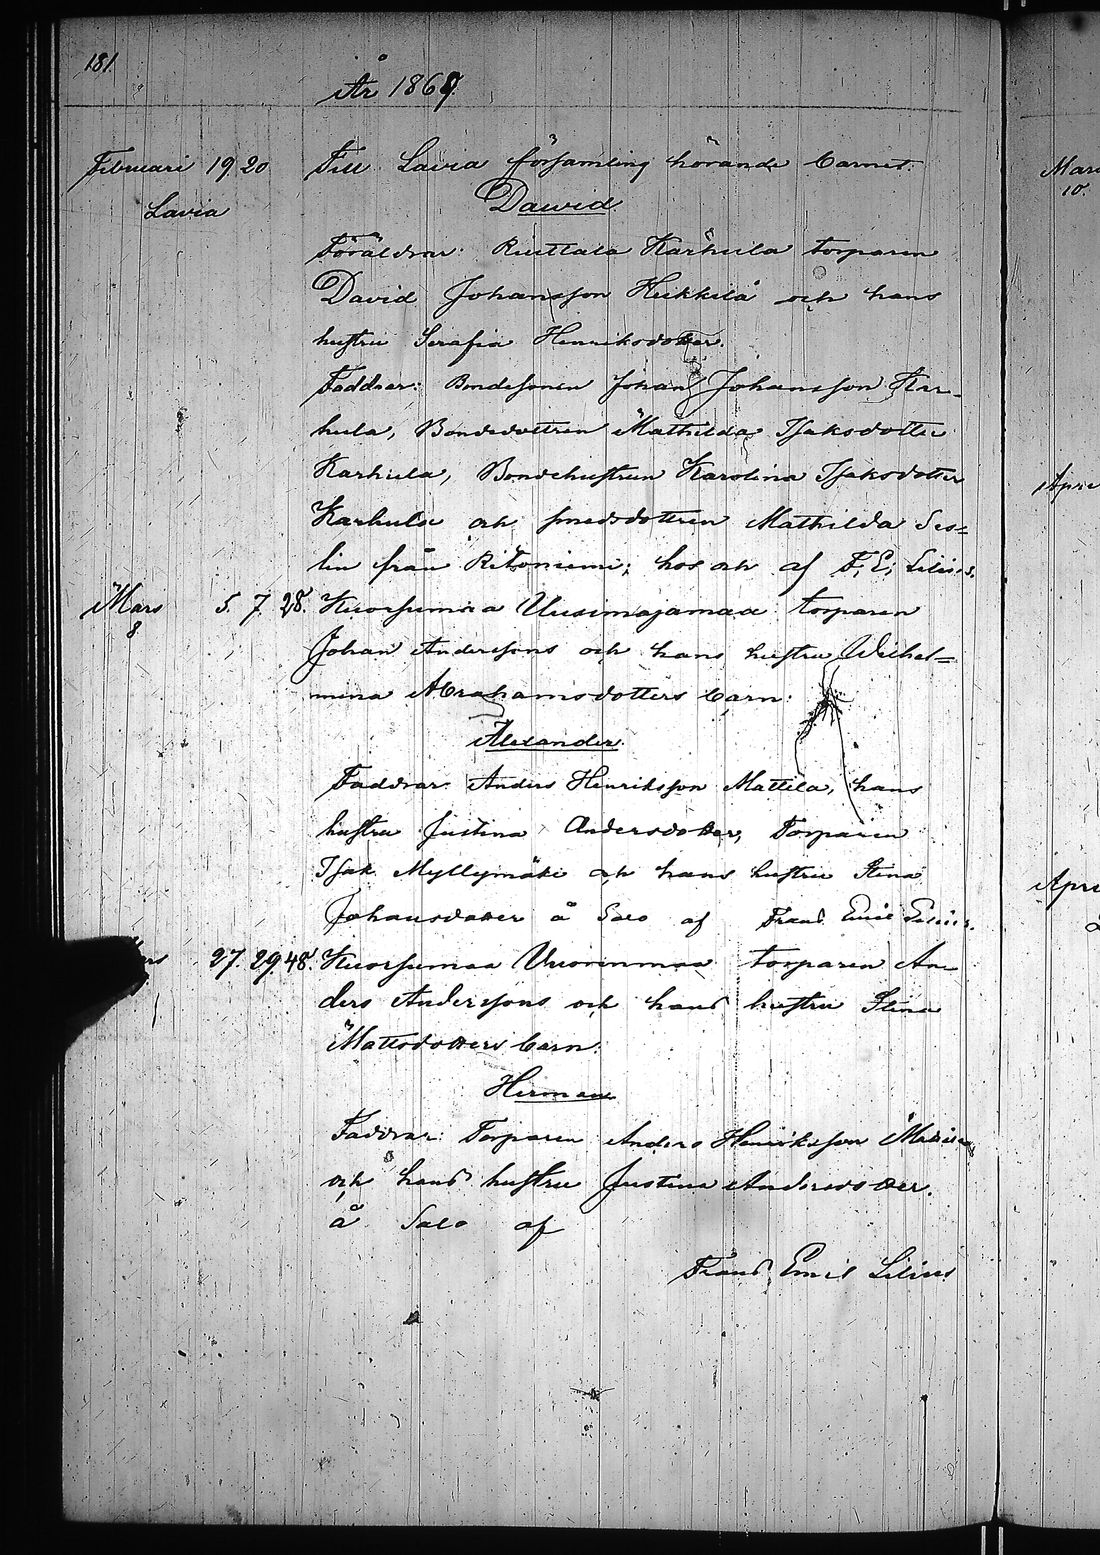 181.
År 1869.
Februari 19. 20 Till Lavia församling hörande barnet.
Lavia Dawid.
Föräldrar: Riuttala Karhula torparen
David Johansson Heikkilä och hans
hustru Serafia Henriksdotter.
Faddrar: Bondesonen Johan Johansson Kar-
hula, Bondedottren Mathilda Isaksdotter
Karhula, Bondehustrun Karolina Isaksdotter
Karhula och smedsdottren Mathilda Ses=
lin från Ritoniemi; hos och af F. E. Lilius.
Mars 5. 7. 28. Kuorsumaa Uusimajamaa torparen
8. Johan Anderssons och hans hustru Wilhel=
mina Abrahamsdotters barn:
Alexander.
Faddrar: Anders Henriksson Mattila, hans
hustru Justina Andersdotter, Torparen
Isak Myllymäki och hans hustru Stina
Johansdotter å Salo af Frans Emil Lilius.
27. 29. 48. Kuorsumaa Vuorenmaa torparen An-
ders Anderssons och hans hustru Stina
Mattsdotters barn:
Herman
Faddrar: Torparen Anders Henriksson Mattila
och hans hustru Justina Andersdotter.
å Salo af
Frans Emil Lilius
Mars
10.